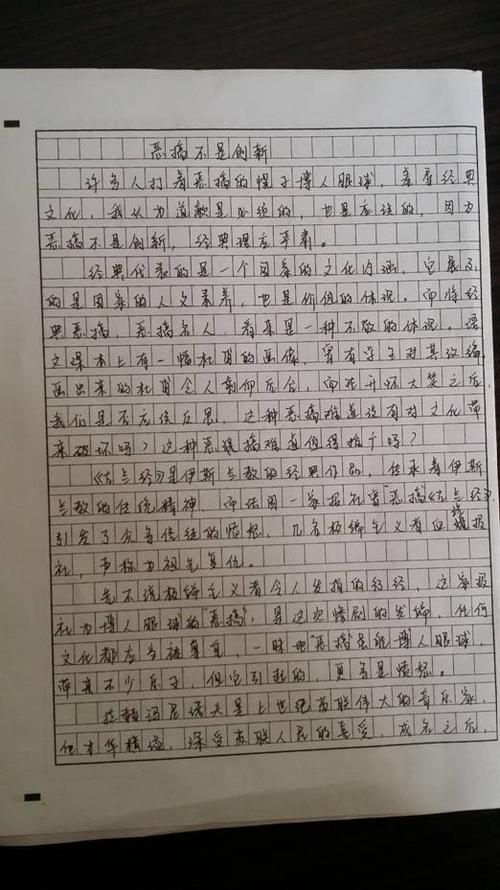 恶搞不是创新
许多人打着恶搞的幌子博人眼球，羞辱经典
文化，我认为道歉是必须的，也是应该的，因为
恶搞不是创新，经典理应严肃。
经典代表的是一个国家的文化内涵，它展示
的是国家的人文素养，也是价值的体现。而将经
典恶搞，恶搞名人，看来是一种不敬的体现。语
文课本上有一幅杜甫的画像，曾有学生对其改编
画出来的杜甫令人前仰后合，而在开怀大笑之后，
我们是否应该反思，这种恶搞难道没有对文化带
来破坏吗？这种恶搞难道值得推广吗？
《古兰经》是伊斯兰教的经典作品，传承着伊斯
兰教的传统精神，而法国一家报社曾"恶搞"《古兰经》
引发了众多信徒的愤怒，几名极端主义者血洗报
社，声称为祖先复仇。
先不说极端主义者令人发指的行径，这家报
社为博人眼球的"恶搞"，是这次惨剧的发端，任何
文化都应当被尊重，一味地"恶搞"虽能博人眼球，
带来不少乐子，但它引起的，更多是愤怒。
拉赫玛尼诺夫是上世纪苏联伟大的音乐家，
他才华横溢，深受苏联人民的喜爱，成名之后，